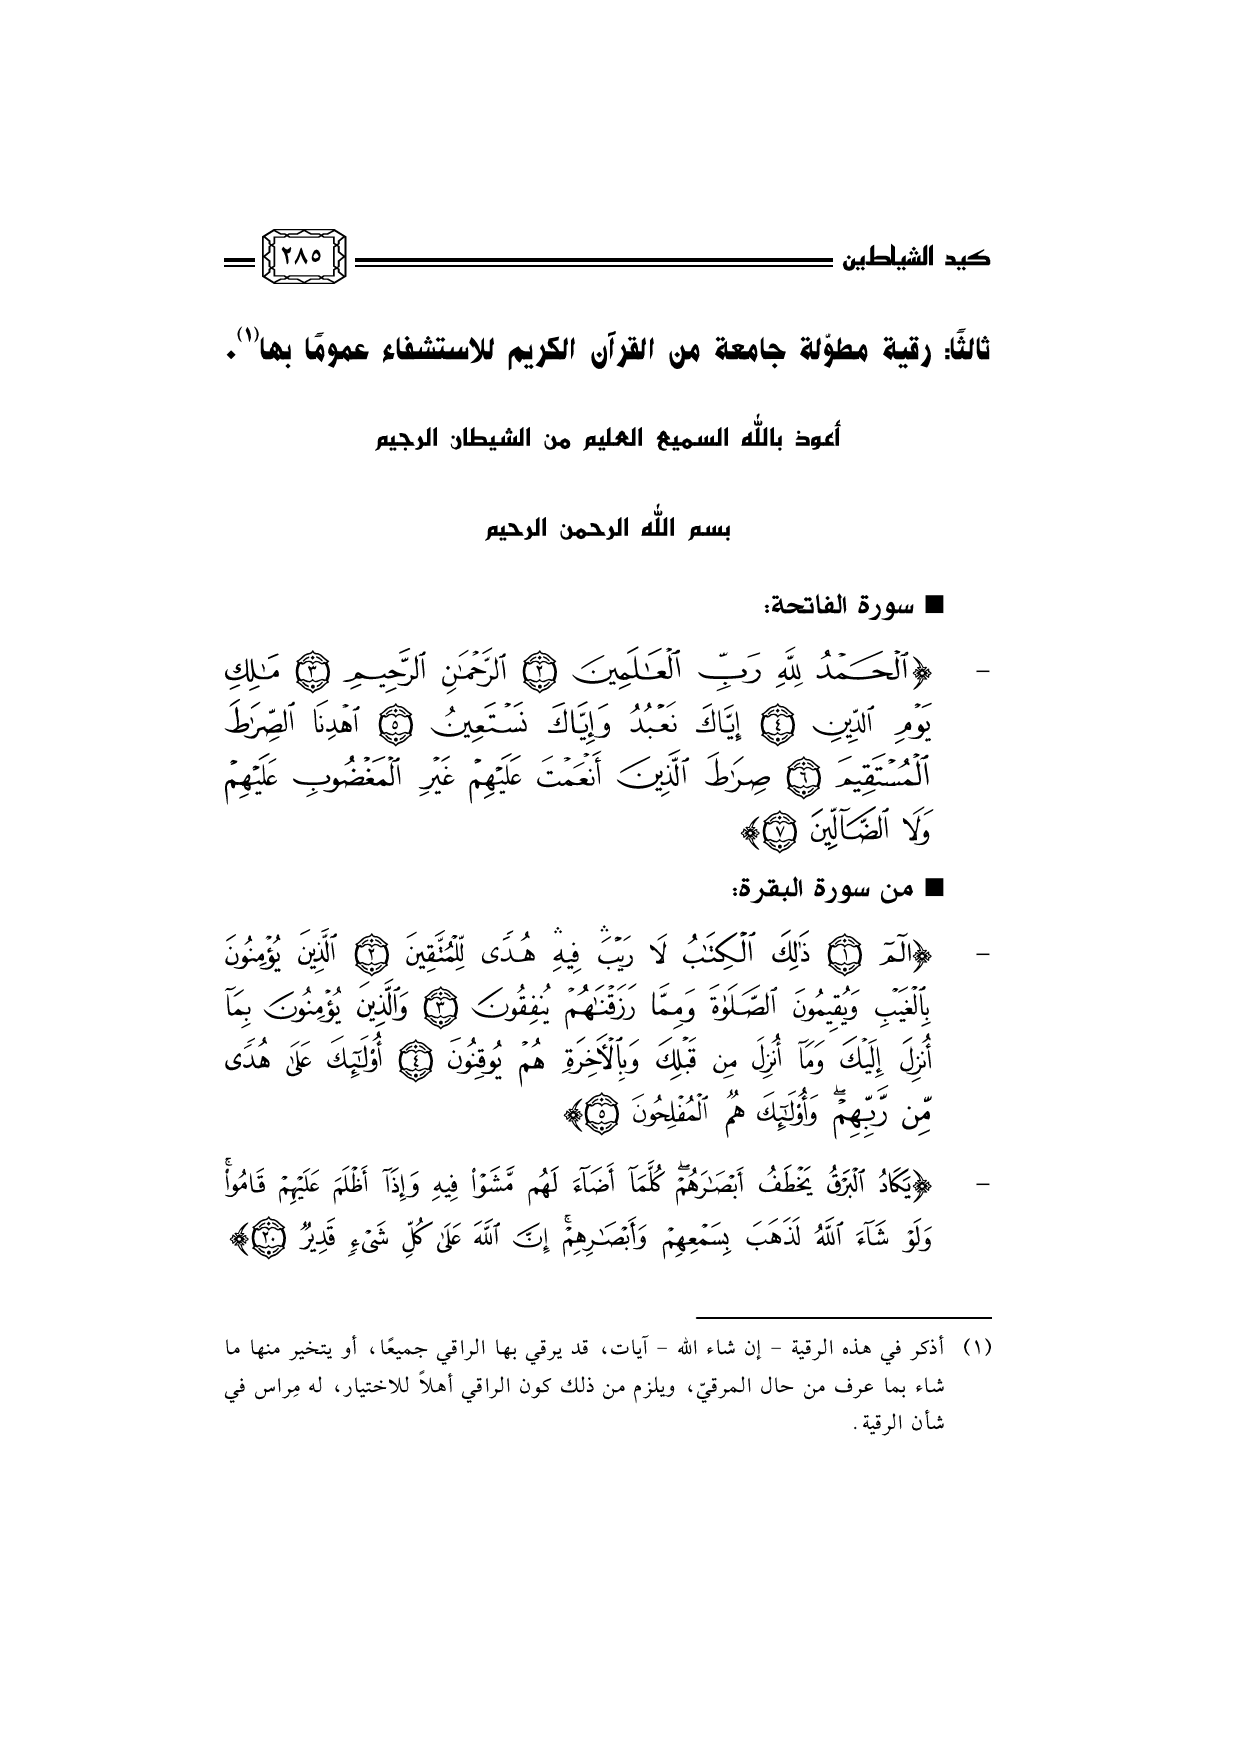 كيد الشياطين ٢٨٥
ثالثًا: رقية مطوّلة جامعة من القرآن الكريم للاستشفاء عمومًا بها(١).
أعوذ بالله السميع العليم من الشيطان الرجيم
بسم الله الرحمن الرحيم
■ سورة الفاتحة:
- ﴿ٱلْحَمْدُ لِلَّهِ رَبِّ ٱلْعَٰلَمِينَ ٢ ٱلرَّحْمَٰنِ ٱلرَّحِيمِ ٣ مَٰلِكِ
يَوْمِ ٱلدِّينِ ٤ إِيَّاكَ نَعْبُدُ وَإِيَّاكَ نَسْتَعِينُ ٥ ٱهْدِنَا ٱلصِّرَٰطَ
ٱلْمُسْتَقِيمَ ٦ صِرَٰطَ ٱلَّذِينَ أَنْعَمْتَ عَلَيْهِمْ غَيْرِ ٱلْمَغْضُوبِ عَلَيْهِمْ
وَلَا ٱلضَّآلِّينَ ٧﴾
■ من سورة البقرة:
- ﴿الٓمٓ ١ ذَٰلِكَ ٱلْكِتَٰبُ لَا رَيْبَۛ فِيهِۛ هُدًى لِّلْمُتَّقِينَ ٢ ٱلَّذِينَ يُؤْمِنُونَ
بِٱلْغَيْبِ وَيُقِيمُونَ ٱلصَّلَوٰةَ وَمِمَّا رَزَقْنَٰهُمْ يُنفِقُونَ ٣ وَٱلَّذِينَ يُؤْمِنُونَ بِمَآ
أُنزِلَ إِلَيْكَ وَمَآ أُنزِلَ مِن قَبْلِكَ وَبِٱلْأٓخِرَةِ هُمْ يُوقِنُونَ ٤ أُو۟لَٰٓئِكَ عَلَىٰ هُدًى
مِّن رَّبِّهِمْۖ وَأُو۟لَٰٓئِكَ هُمُ ٱلْمُفْلِحُونَ ٥﴾
- ﴿يَكَادُ ٱلْبَرْقُ يَخْطَفُ أَبْصَٰرَهُمْۖ كُلَّمَآ أَضَآءَ لَهُم مَّشَوْا۟ فِيهِ وَإِذَآ أَظْلَمَ عَلَيْهِمْ قَامُوا۟ۚ
وَلَوْ شَآءَ ٱللَّهُ لَذَهَبَ بِسَمْعِهِمْ وَأَبْصَٰرِهِمْۚ إِنَّ ٱللَّهَ عَلَىٰ كُلِّ شَىْءٍ قَدِيرٌ ٢٠﴾
(١) أذكر في هذه الرقية - إن شاء الله - آيات، قد يرقي بها الراقي جميعًا، أو يتخير منها ما
شاء بما عرف من حال المرقيّ، ويلزم من ذلك كون الراقي أهلاً للاختيار، له مِراس في
شأن الرقية.